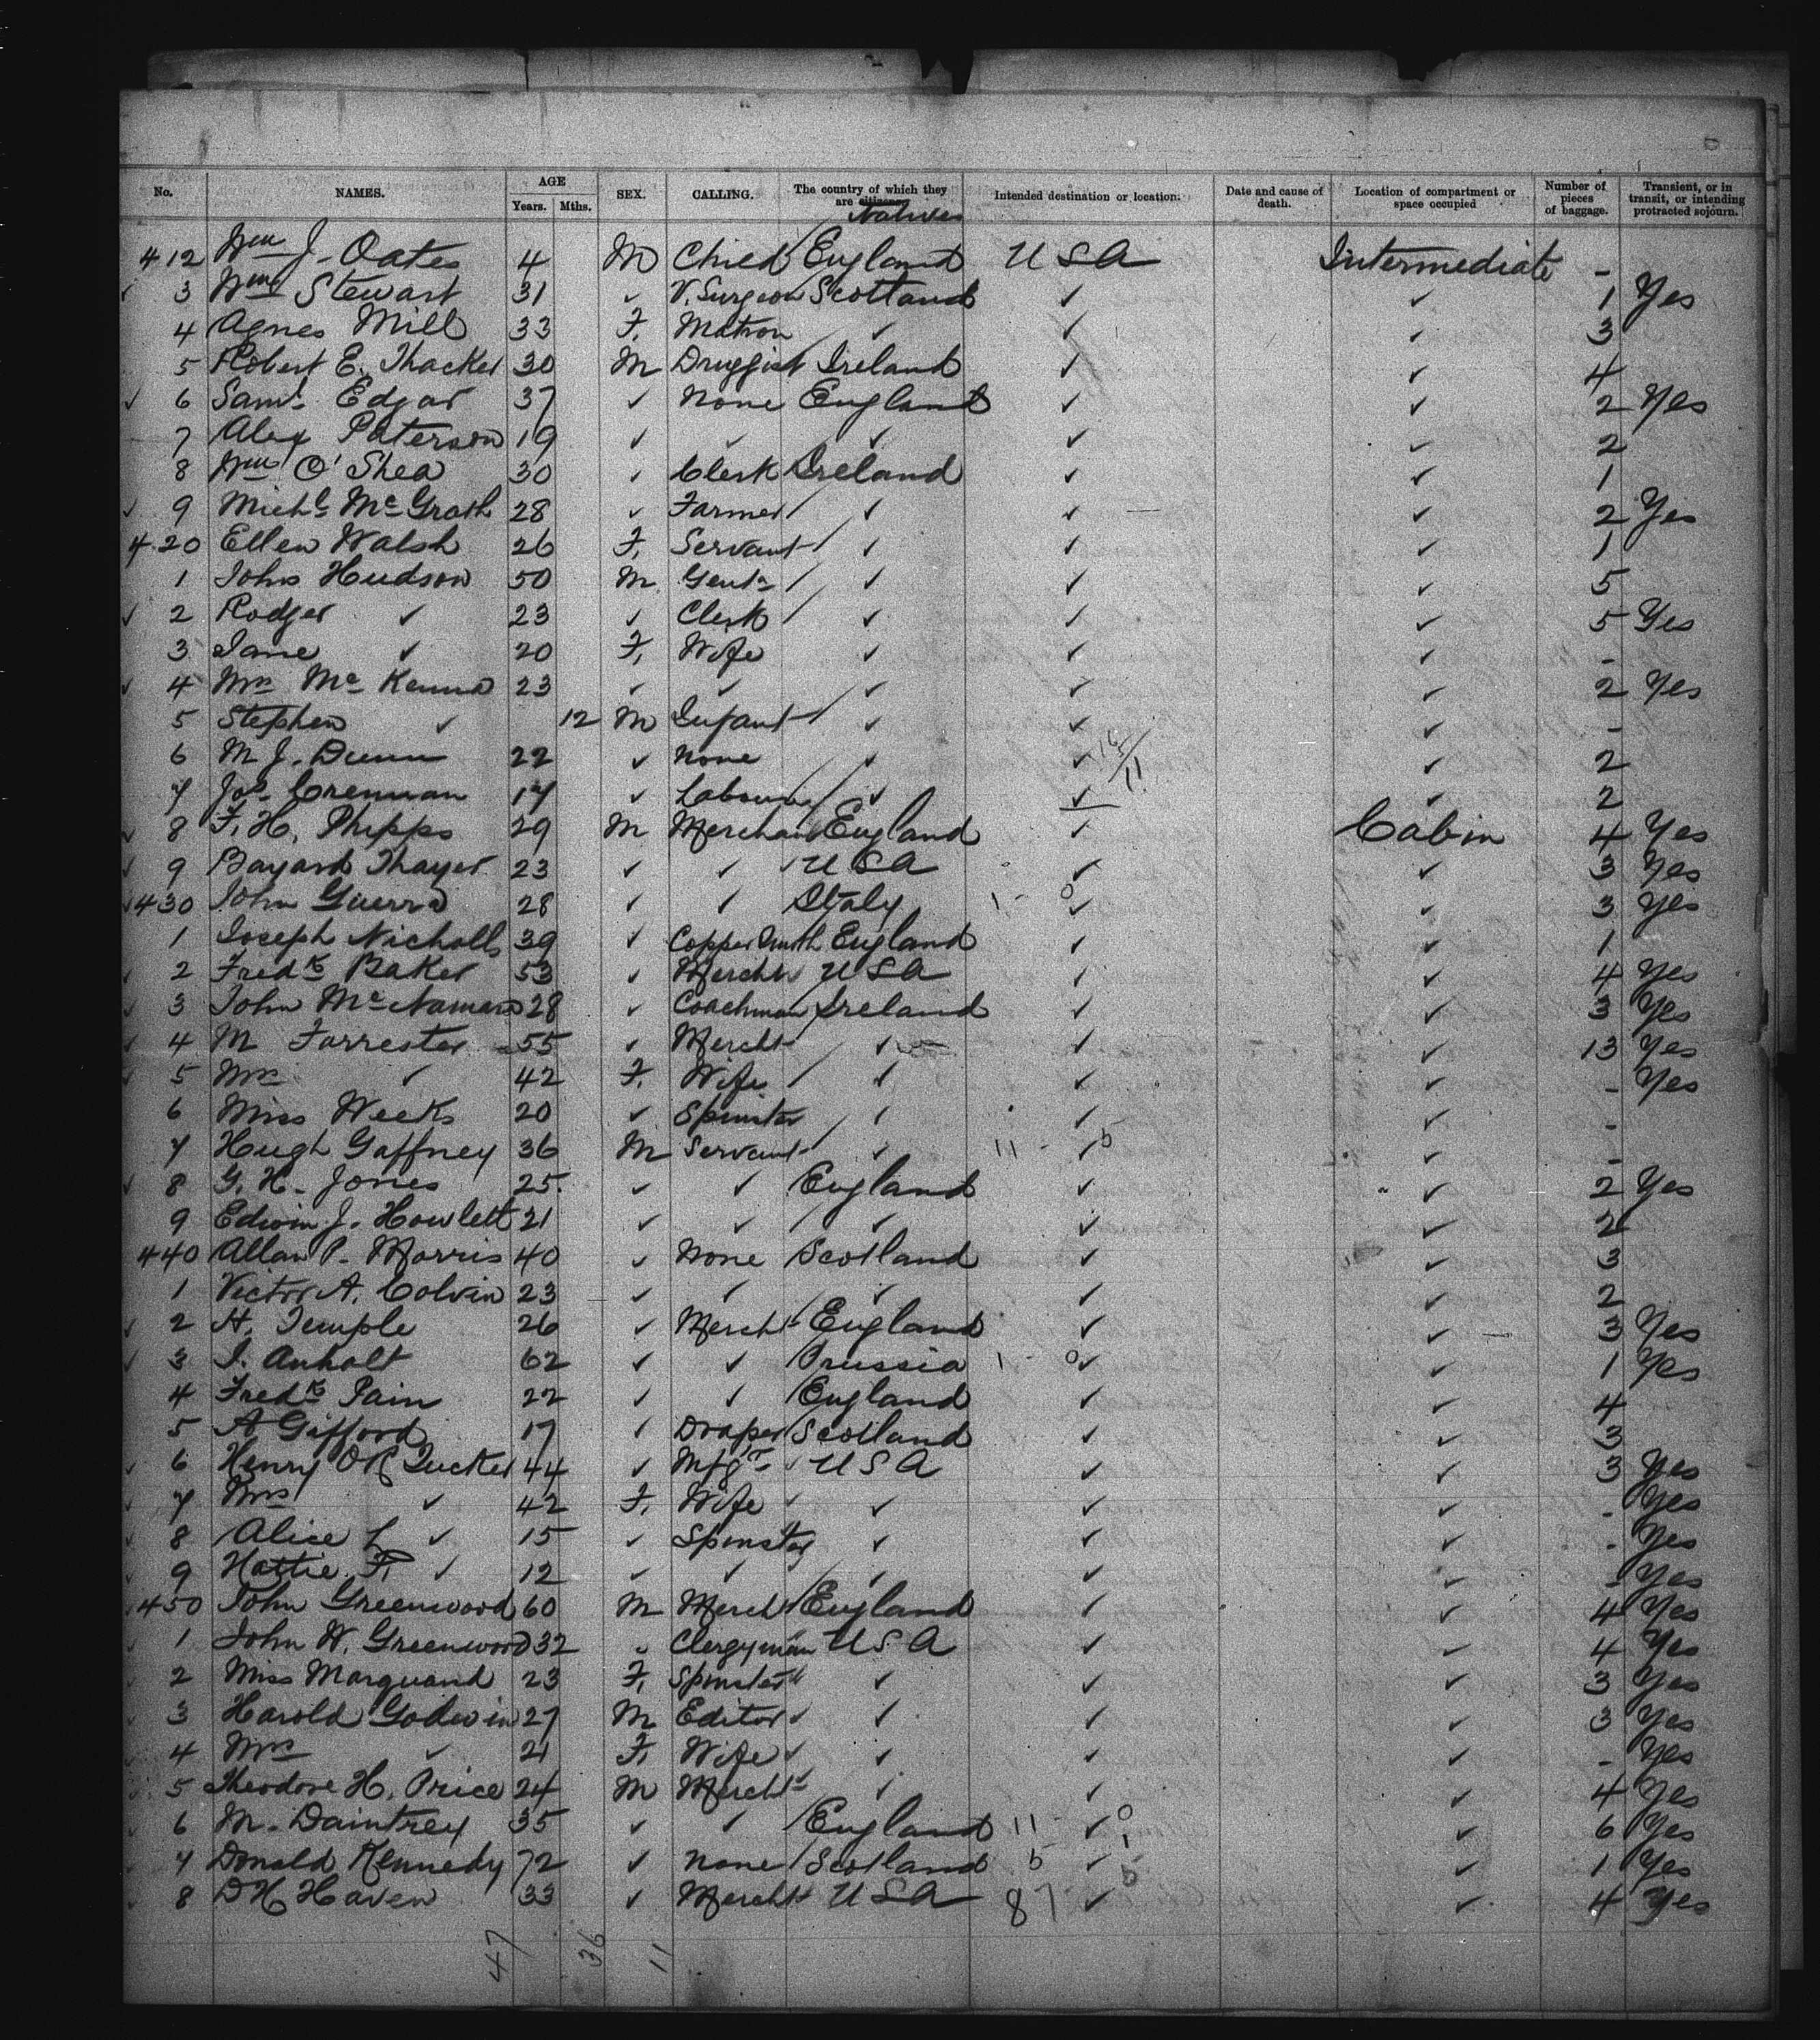 No. NAMES. AGE Years. Mths. SEX. CALLING. The country of which they are citizens. Natives Intended destination or location. Date and cause of death. Location of compartment or space occupied Number of pieces of baggage. Transient, or in transit, or intending protracted sojourn.
412 Wm J. Oates 4 M Child England USA Intermediate -
✓ 3 Wm Stewart 31 ✓ V. Surgeon Scotland ✓ ✓ 1 Yes
4 Agnes Mill 33 F. Matron ✓ ✓ ✓ 3
5 Robert E. Thacker 30 M Druggist Ireland ✓ ✓ 4
✓ 6 Saml. Edgar 37 ✓ None England ✓ ✓ 2 Yes
7 Alex Paterson 19 ✓ ✓ ✓ ✓ ✓ 2
8 Wm O'Shea 30 ✓ Clerk Ireland ✓ ✓ 1
✓ 9 Michl McGrath 28 ✓ Farmer ✓ ✓ ✓ 2 Yes
420 Ellen Walsh 26 F. Servant ✓ ✓ ✓ 1
1 John Hudson 50 M. Gentn ✓ ✓ ✓ 5
✓ 2 Rodger ✓ 23 ✓ Clerk ✓ ✓ ✓ 5 Yes
3 Jane ✓ 20 F. Wife ✓ ✓ ✓ -
✓ 4 Mrs McKenna 23 ✓ ✓ ✓ ✓ ✓ 2 Yes
5 Stephen ✓ 12 M Infant ✓ ✓ ✓ -
6 M J. Dunn 22 ✓ None ✓ ✓ ✓ 2
7 Jas. Crennan 17 ✓ Labourer ✓ ✓ ✓ 2
✓ 8 F. H. Phipps 29 M Merchant England ✓ Cabin 4 Yes
✓ 9 Bayard Thayer 23 ✓ ✓ USA ✓ ✓ 3 Yes
✓ 430 John Guerra 28 ✓ ✓ Italy 1 - 0 ✓ ✓ 3 Yes
1 Joseph Nicholls 39 ✓ Coppersmith England ✓ ✓ 1
✓ 2 Fredk Baker 53 ✓ Mercht USA ✓ ✓ 4 Yes
✓ 3 John McNamara 28 ✓ Coachman Ireland ✓ ✓ 3 Yes
✓ 4 M Forrester 55 ✓ Mercht ✓ ✓ ✓ 13 Yes
✓ 5 Mrs ✓ 42 F. Wife ✓ ✓ ✓ - Yes
6 Miss Weeks 20 ✓ Spinster ✓ ✓ ✓ -
7 Hugh Gaffney 36 M Servant ✓ 11 - 5 ✓ ✓ -
✓ 8 G. H. Jones 25. ✓ ✓ England ✓ ✓ 2 Yes
9 Edwin J. Howlett 21 ✓ ✓ ✓ ✓ ✓ 2
440 Allan P. Morris 40 ✓ None Scotland ✓ ✓ 3
1 Victor A. Colvin 23 ✓ ✓ ✓ ✓ ✓ 2
✓ 2 H. Temple 26 ✓ Mercht England ✓ ✓ 3 Yes
✓ 3 J. Anholt 62 ✓ ✓ Prussia 1 - 0 ✓ ✓ 1 Yes
4 Fredk Pain 22 ✓ ✓ England ✓ ✓ 4
5 A Gifford 17 ✓ Draper Scotland ✓ ✓ 3
✓ 6 Henry Tucker 44 ✓ Mfgr USA ✓ ✓ 3 Yes
✓ 7 Mrs ✓ 42 F. Wife ✓ ✓ ✓ - Yes
✓ 8 Alice L ✓ 15 ✓ Spinster ✓ ✓ ✓ - Yes
9 Hattie F. ✓ 12 ✓ ✓ ✓ ✓ ✓ - Yes
✓ 450 John Greenwood 60 M Mercht England ✓ ✓ 4 Yes
✓ 1 John W. Greenwood 32 ✓ Clergyman USA ✓ ✓ 4 Yes
✓ 2 Miss Marquand 23 F. Spinster ✓ ✓ ✓ 3 Yes
✓ 3 Harold Godwin 27 M Editor ✓ ✓ ✓ 3 Yes
✓ 4 Mrs ✓ 21 F. Wife ✓ ✓ ✓ - Yes
✓ 5 Theodore H. Price 24 M Mercht ✓ ✓ ✓ 4 Yes
✓ 6 M. Daintrey 35 ✓ ✓ England 11 ✓ 0 ✓ 6 Yes
✓ 7 Donald Kennedy 72 ✓ None Scotland 5 ✓ 1 ✓ 1 Yes
✓ 8 D H Haven 33 ✓ Mercht USA 87 ✓ ✓ 4 Yes
47 36 11